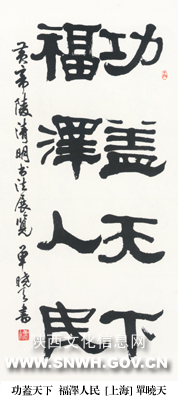 功盖天下
福澤人民
黄帝陵清明书法展览 單曉天書
陕西文化信息网
WWW.SNWH.GOV.CN
功蓋天下 福澤人民 [上海] 單曉天